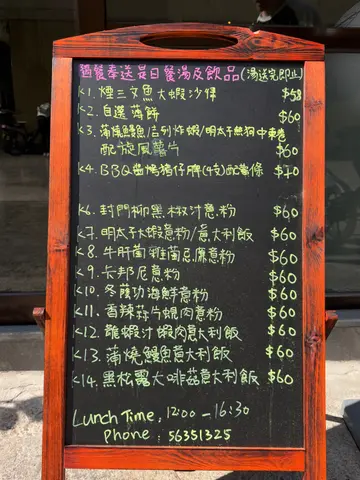 適餐奉送是日餐湯及飲品(湯送完即止)
K1. 煙三文魚大蝦沙律 $58
K2. 自選薄餅 $60
K3. 蒲燒鰻魚/吉列炸蝦/明太子熱狗中東卷
配旋風薯片 $60
K4. BBQ醬燒豬仔脾(4支)配薯條 $70
K6. 封門柳黑椒汁意粉 $60
K7. 明太子大蝦意粉/意大利飯 $60
K8. 牛肝菌雜菌忌廉意粉 $60
K9. 卡邦尼意粉 $60
K10. 冬蔭功海鮮意粉 $60
K11. 香辣蒜片蜆肉意粉 $60
K12. 龍蝦汁蝦肉意大利飯 $60
K13. 蒲燒鰻魚意大利飯 $60
K14. 黑松露大啡菇意大利飯 $60
Lunch Time, 12:00 - 16:30
phone: 56351325